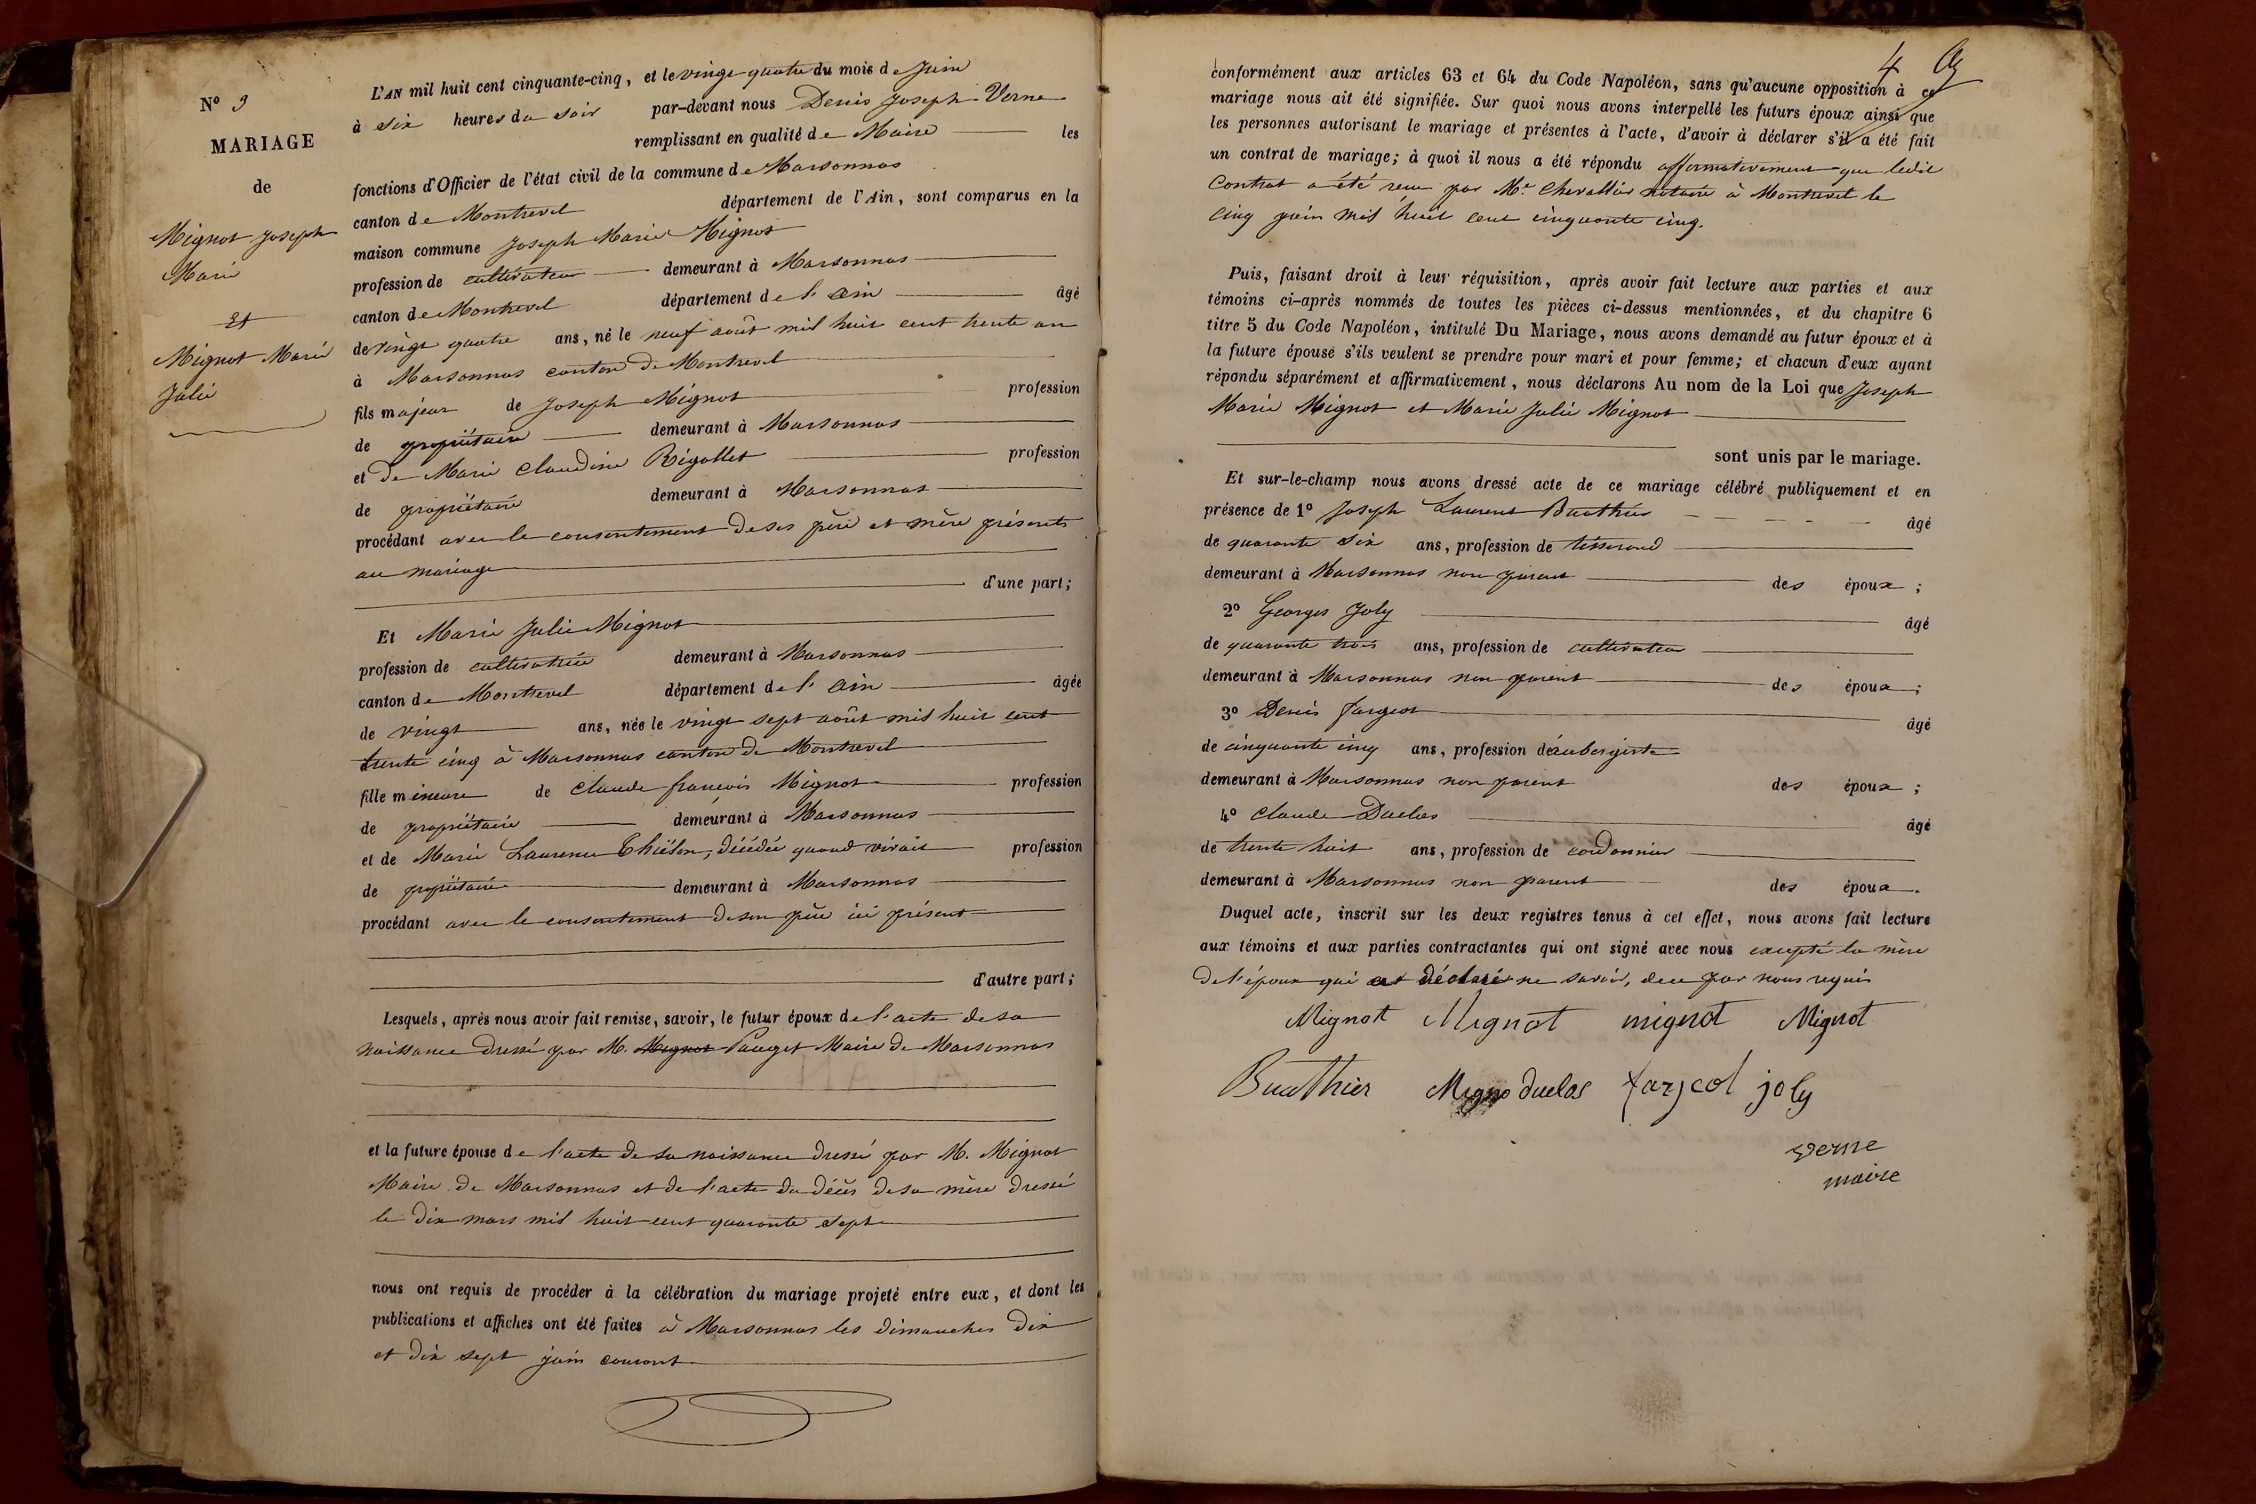 N° 9
MARIAGE
de
Mignot Joseph
Marie
Et
Mignot Marie
Julie
L'AN mil huit cent cinquante-cinq, et le vingt quatre du mois de Juin
à six heures du soir par-devant nous Denis Joseph Verne
remplissant en qualité de Maire les
fonctions d'Officier de l'état civil de la commune de Marsonnas
canton de Montrevel département de l'Ain, sont comparus en la
maison commune Joseph Marie Mignot
profession de cultivateur demeurant à Marsonnas
canton de Montrevel département de l'Ain âgé
de vingt quatre ans, né le neuf août mil huit cent trente un
à Marsonnas canton de Montrevel
fils majeur de Joseph Mignot profession
de propriétaire demeurant à Marsonnas
et de Marie Claudine Rigollet profession
de propriétaire demeurant à Marsonnas
procédant avec le consentement de ses père et mère présents
au mariage
d'une part;
Et Marie Julie Mignot
profession de cultivatrice demeurant à Marsonnas
canton de Montrevel département de l'Ain âgée
de vingt ans, née le vingt sept août mil huit cent
trente cinq à Marsonnas canton de Montrevel
fille mineure de Claude françois Mignot profession
de propriétaire demeurant à Marsonnas
et de Marie Laurence décédée quand vivait profession
de propriétaire demeurant à Marsonnas
procédant avec le consentement de son père ici présent
d'autre part;
Lesquels, après nous avoir fait remise, savoir, le futur époux de l'acte de sa
naissance dressé par M. Mignot Pauget Maire de Marsonnas
et la future épouse de l'acte de sa naissance dressé par M. Mignot
Maire de Marsonnas et de l'acte du décès de sa mère dressé
le dix mars mil huit cent quarante sept
nous ont requis de procéder à la célébration du mariage projeté entre eux, et dont les
publications et affiches ont été faites à Marsonnas les dimanches dix
et dix sept juin courant
4
conformément aux articles 63 et 64 du Code Napoléon, sans qu'aucune opposition à ce
mariage nous ait été signifiée. Sur quoi nous avons interpellé les futurs époux ainsi que
les personnes autorisant le mariage et présentes à l'acte, d'avoir à déclarer s'il a été fait
un contrat de mariage; à quoi il nous a été répondu affirmativement que ledit
Contrat a été reçu par Me. Chevallier notaire à Montrevel le
cinq juin mil huit cent cinquante cinq.
Puis, faisant droit à leur réquisition, après avoir fait lecture aux parties et aux
témoins ci-après nommés de toutes les pièces ci-dessus mentionnées, et du chapitre 6
titre 5 du Code Napoléon, intitulé Du Mariage, nous avons demandé au futur époux et à
la future épouse s'ils veulent se prendre pour mari et pour femme; et chacun d'eux ayant
répondu séparément et affirmativement, nous déclarons Au nom de la Loi que Joseph
Marie Mignot et Marie Julie Mignot
sont unis par le mariage.
Et sur-le-champ nous avons dressé acte de ce mariage célébré publiquement et en
présence de 1° Joseph Laurent Buathier âgé
de quarante six ans, profession de tisserand
demeurant à Marsonnas non parent des époux;
2° Georges Joly âgé
de quarante trois ans, profession de cultivateur
demeurant à Marsonnas non parent des époux;
3° Denis fargeot âgé
de cinquante cinq ans, profession d'aubergiste
demeurant à Marsonnas non parent des époux;
4° Claude Duclos âgé
de trente huit ans, profession de cordonnier
demeurant à Marsonnas non parent des époux.
Duquel acte, inscrit sur les deux registres tenus à cet effet, nous avons fait lecture
aux témoins et aux parties contractantes qui ont signé avec nous excepté la mère
de l'époux qui a déclaré ne savoir, de ce par nous requis
Mignot Mignot mignot Mignot
Buathier Migno duclos farjcot joly
verne
maire